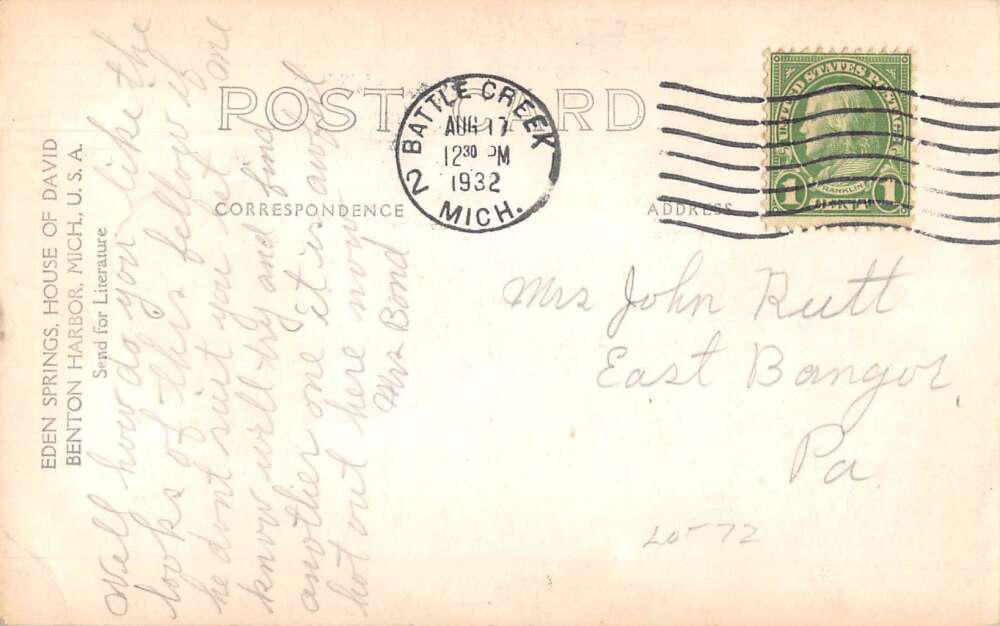 EDEN SPRINGS, HOUSE OF DAVID
BENTON HARBOR, MICH., U. S. A.
Send for Literature
Well how do you like the
looks of this fellow if
he dont suit you let me
know will try and find
another one it is awful
hot out here now
Mrs Bond
POST CARD
CORRESPONDENCE
ADDRESS
BATTLE CREEK
AUG 17
12 30 PM
1932
2 MICH.
UNITED STATES POSTAGE
FRANKLIN
1 1
Mrs John Rutt
East Bangor
Pa.
LOT 72